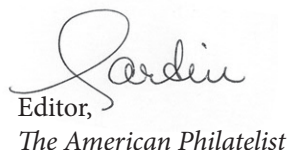 Editor,
The American Philatelist